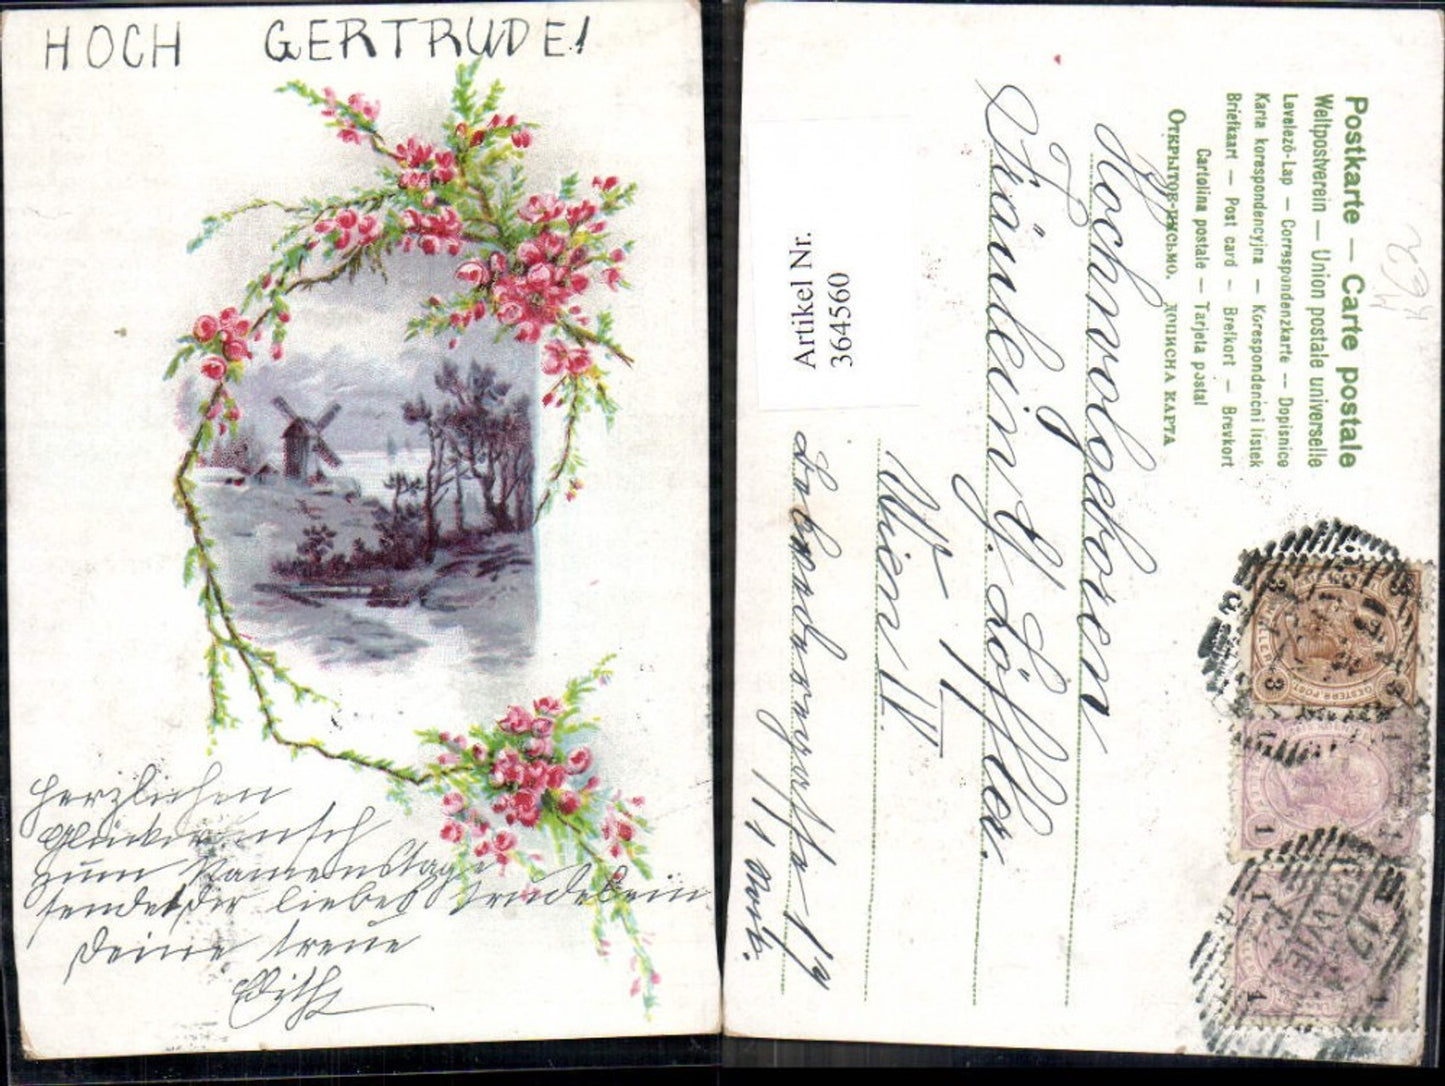 HOCH GERTRUDE!
Herzlichen
Glückwunsch
zum Namenstage
sendet dir liebes Trudelein
Deine treue
Edith
Artikel Nr.
364560
Postkarte — Carte postale
Weltpostverein — Union postale universelle
Levelező-Lap — Correspondenzkarte — Dopisnice
Karta korespondencyjna — Korespondencni listek
Briefkaart — Post card — Brefkort — Brevkort
Cartolina postale — Tarjeta postal
Открытое письмо. ДОПИСНА КАРТА
Hochwolgeboren
Fräulein G. Löffler.
Wien VI.
3 3
OESTERR. POST
3 3
1 1
1 1
WIEN